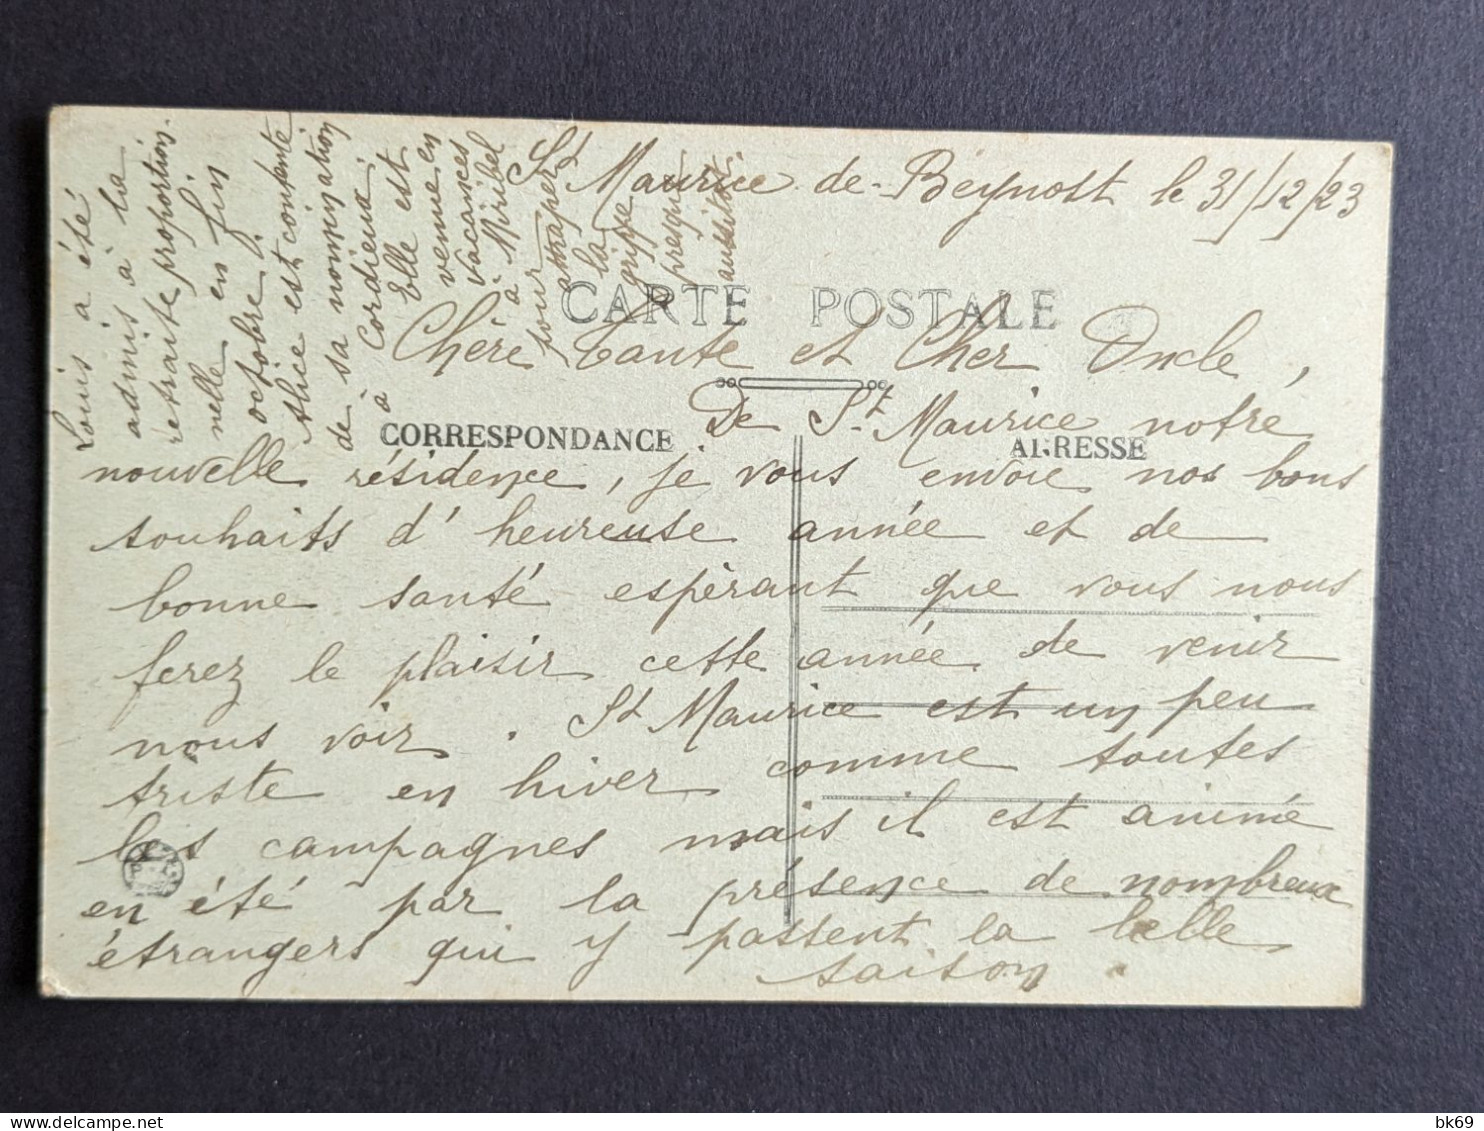 St Maurice de Beynost le 31/12/23
CARTE POSTALE
Chère Tante et Cher Oncle,
CORRESPONDANCE
ADRESSE
De St Maurice notre
nouvelle résidence, je vous envoie nos bons
souhaits d'heureuse année et de
bonne santé espèrant que vous nous
ferez le plaisir cette année de venir
nous voir. St Maurice est un peu
triste en hiver comme toutes
les campagnes mais il est animé
en été par la présence de nombreux
étrangers qui y passent la belle
saison.
Louis a été
admis à la
retraite proportion
nelle en fin
octobre.
Alice est contente
de sa nomination
à Cordieux
Elle est
venue en
vacances
à Miribel
pour
attraper
la
grippe
presque
aussitôt.
bk69